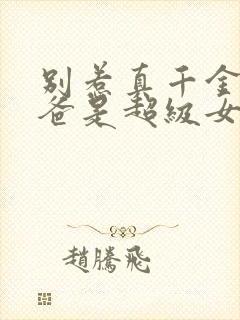 别惹真千金
爸是超级女
趙騰飛